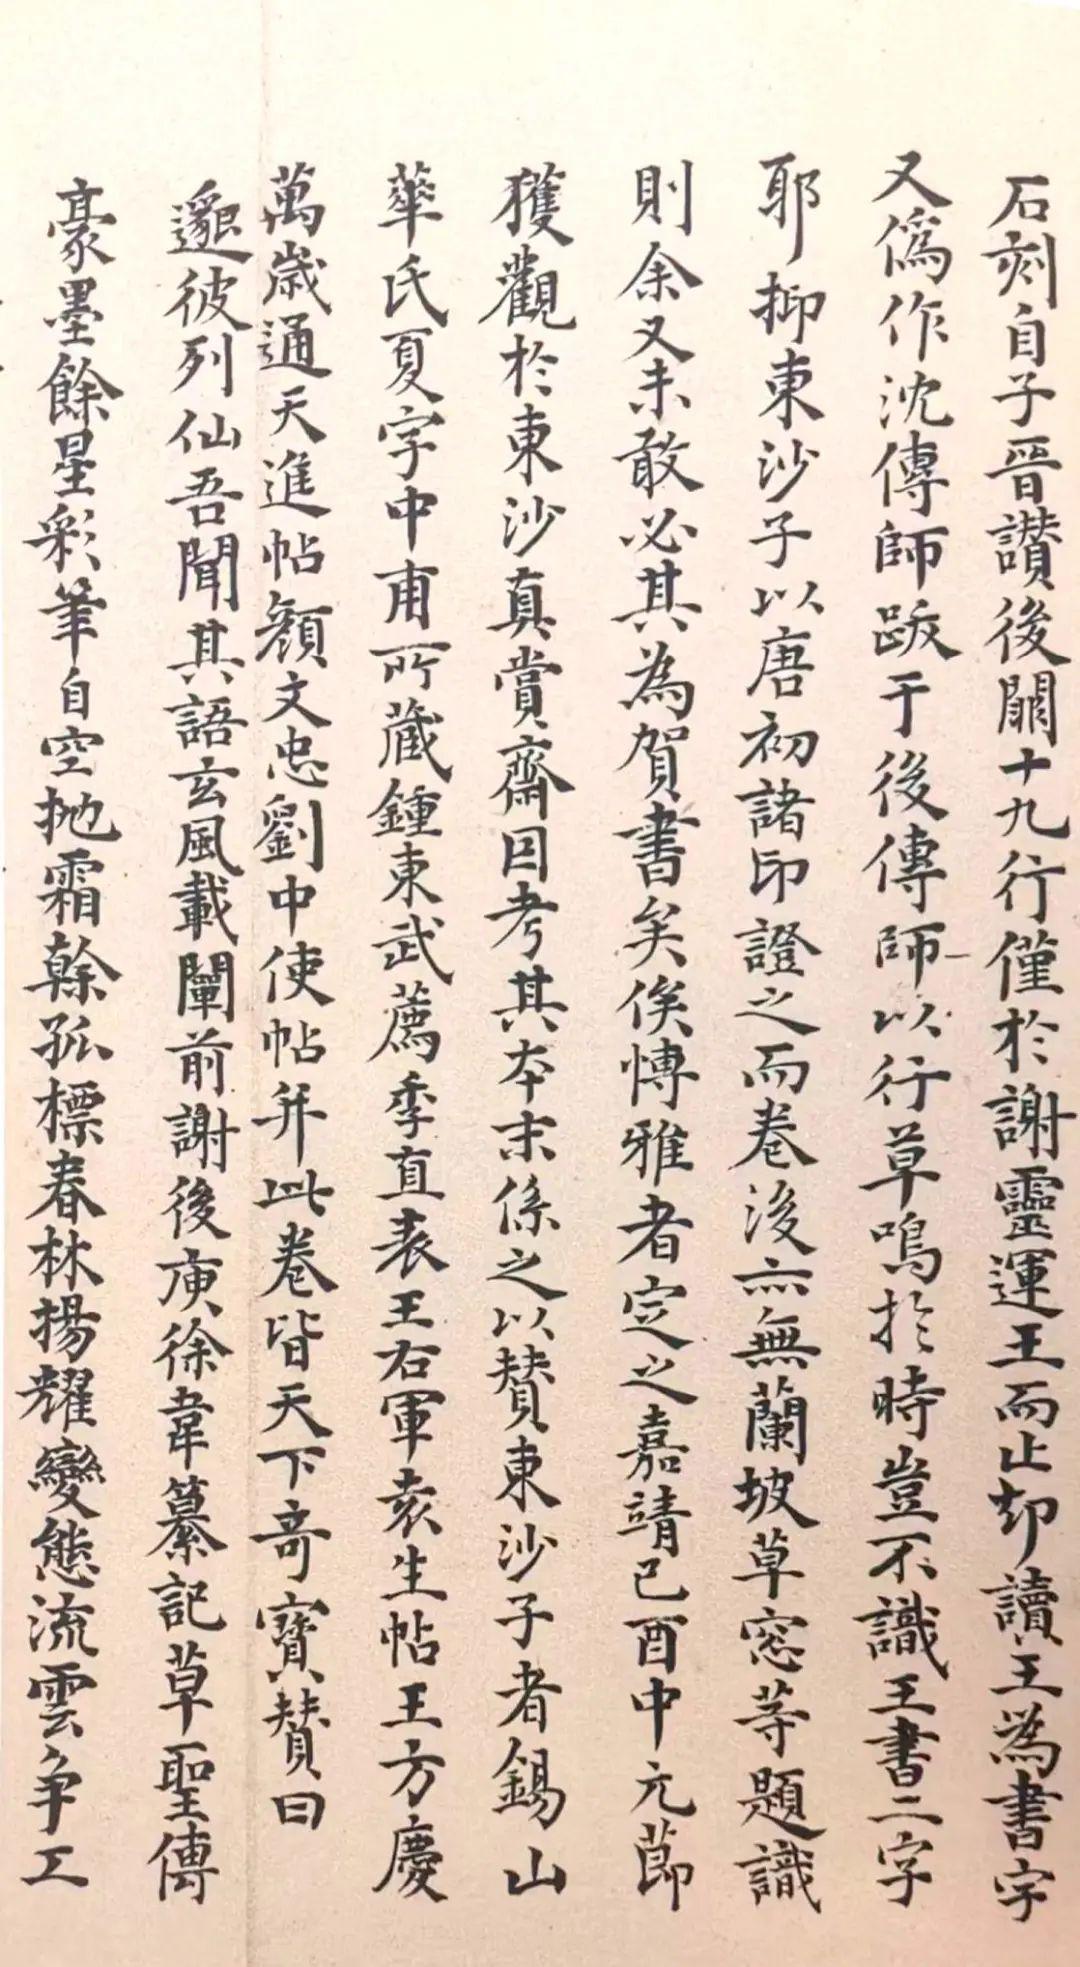 石刻自子晉讚後闕十九行僅於謝靈運王而止却讀王為書字
又偽作沈傳師跋于後傳師以行草鳴於時豈不識王書二字
耶抑東沙子以唐初諸印證之而卷後亦無蘭坡草窓等題識
則余又未敢必其為賀書矣俟博雅者定之嘉靖己酉中元節
獲觀於東沙真賞齋因考其本末係之以贊東沙子者錫山
華氏夏字中甫所藏鍾東武薦季直表王右軍袁生帖王方慶
萬歲通天進帖顏文忠劉中使帖并此卷皆天下奇寶贊曰
邈彼列仙吾聞其語玄風載闡前謝後庾徐韋纂記草聖傳
豪墨餘星彩筆自空抛霜榦孤標春林揚耀變態流雲争工